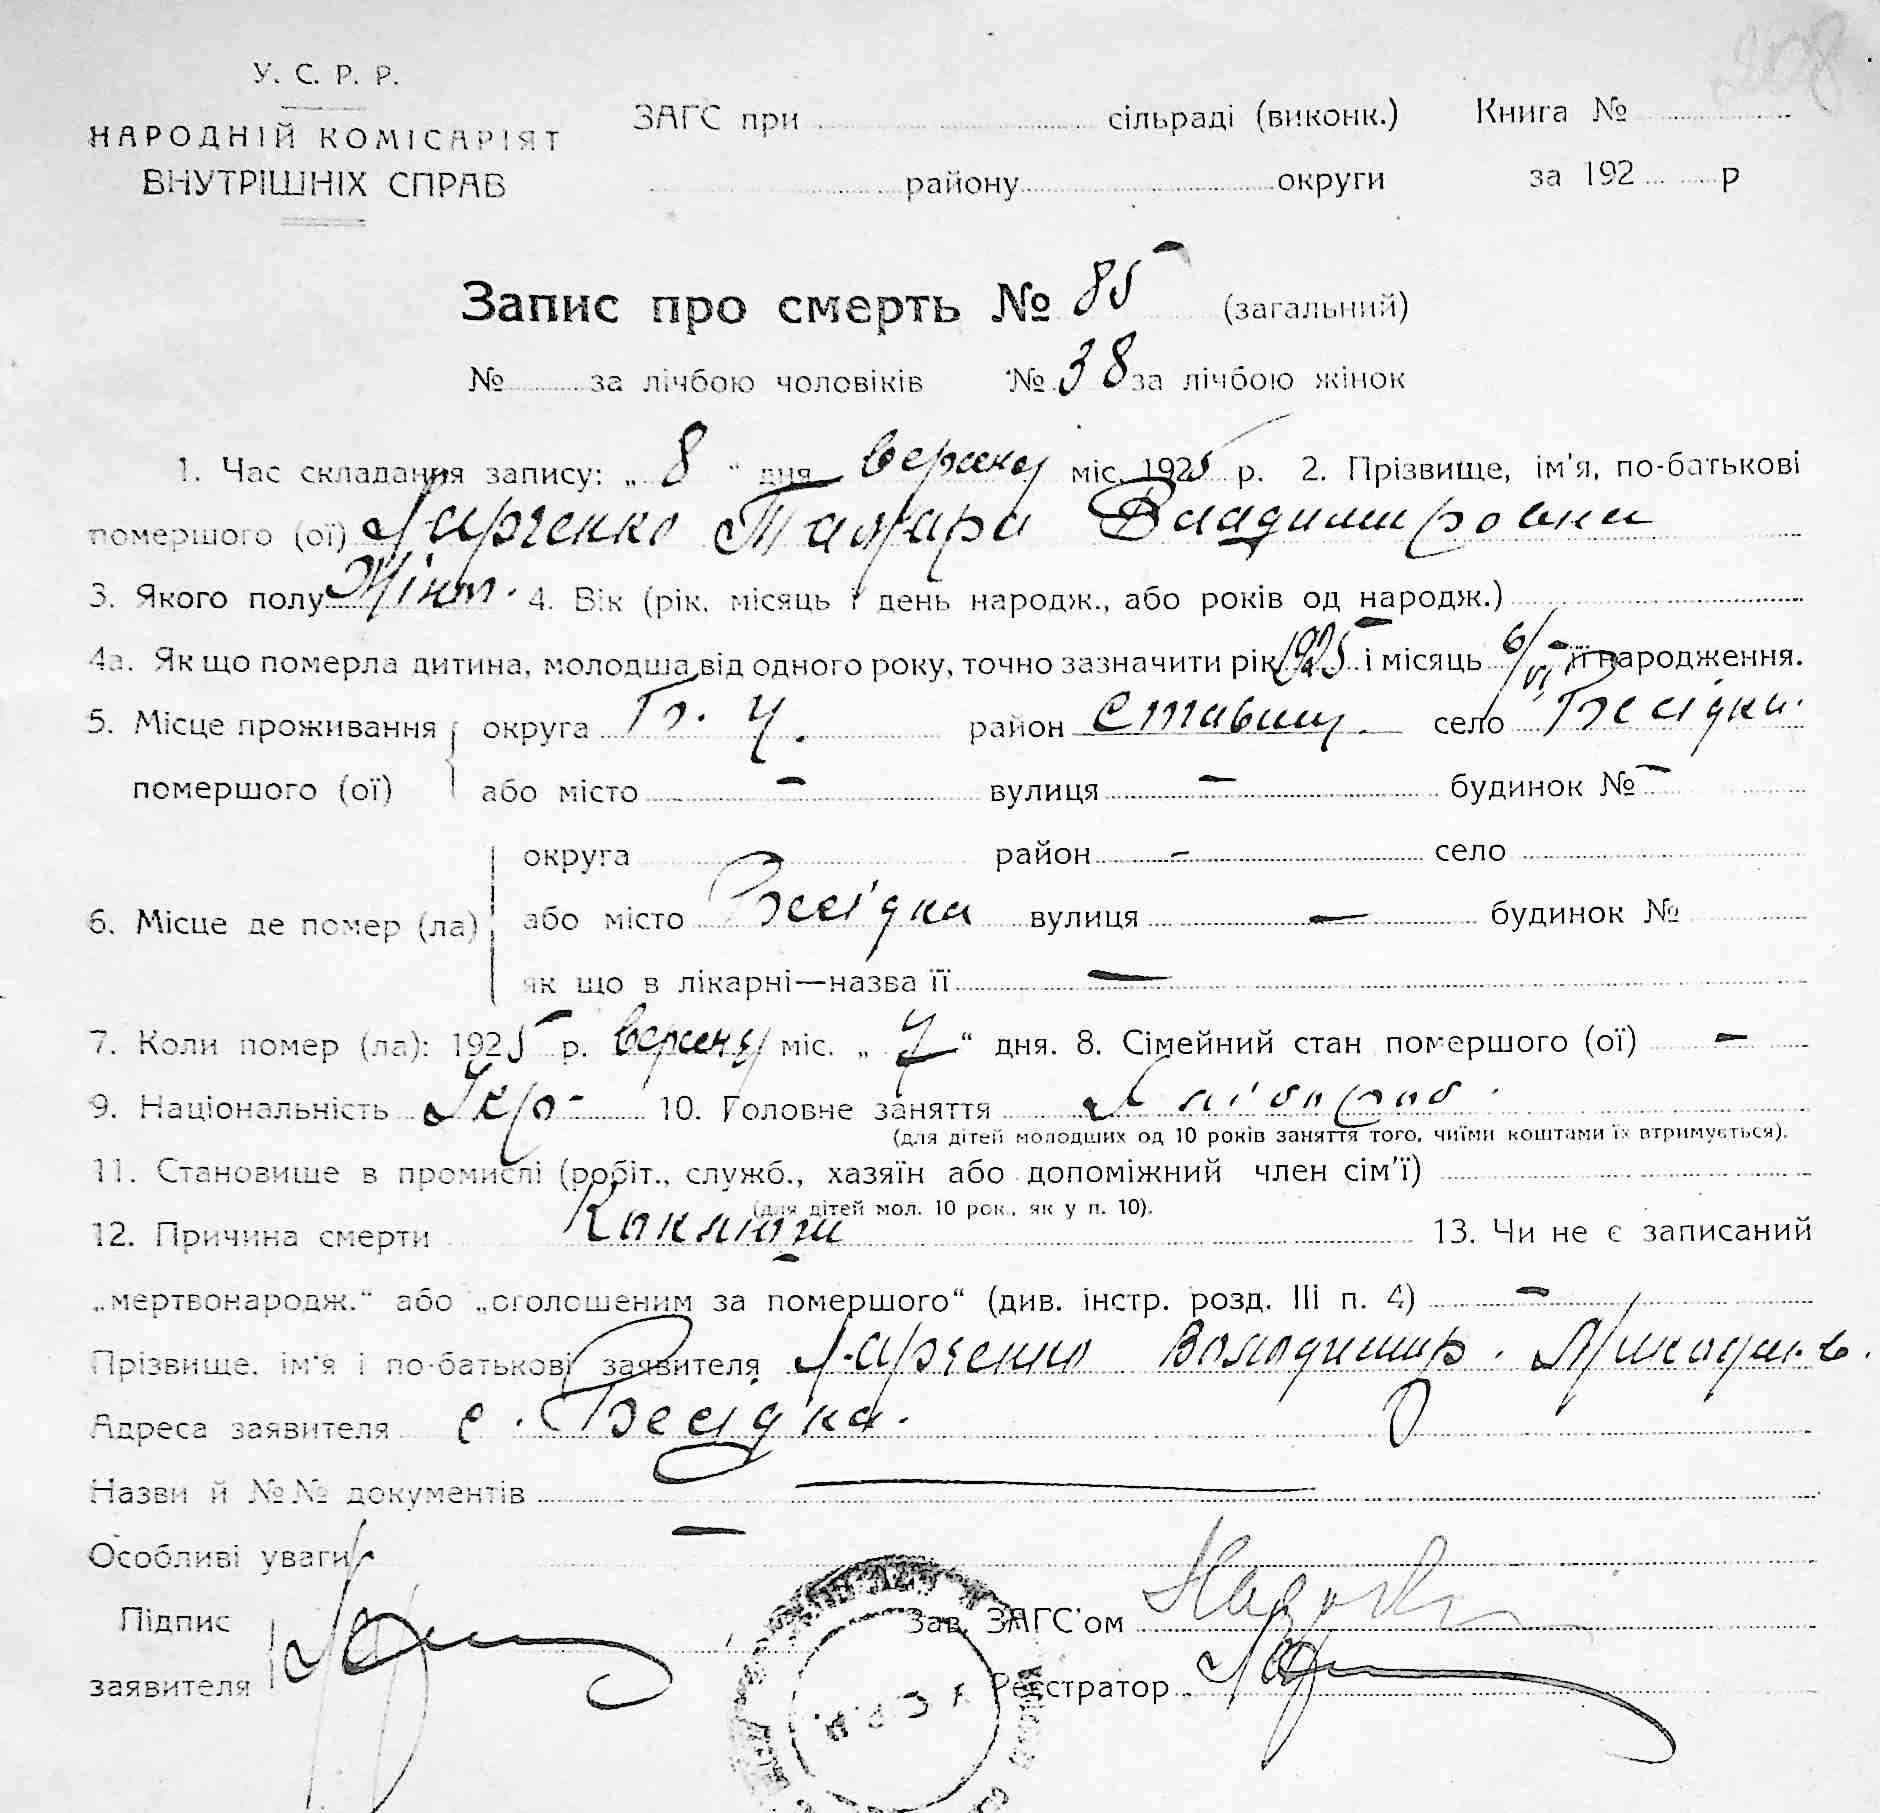 208
У. С. Р. Р.
НАРОДНІЙ КОМІСАРІЯТ
ВНУТРІШНІХ СПРАВ
ЗАГС при сільраді (виконк.) Книга №
району округи за 192 р
Запис про смерть № 85 (загальний)
№ за лічбою чоловіків № 38 за лічбою жінок
1. Час складання запису: „ 8 “ дня вересня міс. 1925 р. 2. Прізвище, ім'я, по-батькові
помершого (ої) Ларченко Тамара Владимировна
3. Якого полу Жіноч. 4. Вік (рік, місяць і день народж., або років од народж.)
4а. Як що померла дитина, молодша від одного року, точно зазначити рік 1925 і місяць 6/VI її народження.
5. Місце проживання округа Б. Ц. район Ставищ. село Бесідка.
помершого (ої) або місто – вулиця – будинок № –
округа район – село
6. Місце де помер (ла) або місто Бесідка вулиця – будинок №
як що в лікарні—назва її –
7. Коли помер (ла): 1925 р. вересня міс. „ 7 “ дня. 8. Сімейний стан помершого (ої) –
9. Національність Укр- 10. Головне заняття Хлібороб.
(для дітей молодших од 10 років заняття того, чиїми коштами їх втримується).
11. Становище в промислі (робіт., служб., хазяїн або допоміжний член сім'ї)
(для дітей мол. 10 рок., як у п. 10).
12. Причина смерти Коклюш 13. Чи не є записаний
„мертвонародж.“ або „оголошеним за помершого“ (див. інстр. розд. III п. 4) –
Прізвище, ім'я і по-батькові заявителя Ларченко Володимир.
Адреса заявителя с. Бесідка.
Назви й №№ документів
Особливі уваги –
Підпис Зав. ЗАГС'ом
заявителя Реєстратор